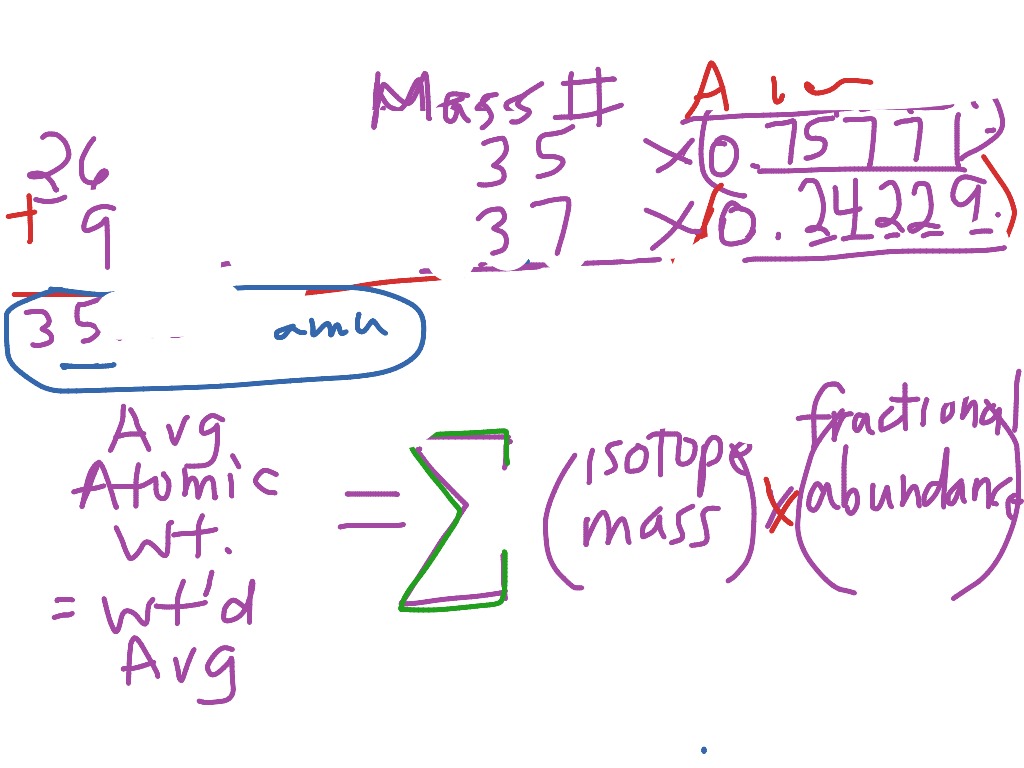 Mass #
26 35 x(0.75771)
+ 9 37 x(0.24229)
35 amu
Avg
Atomic
Wt.
= wt'd
Avg
= Σ (isotope mass) x (fractional abundance)